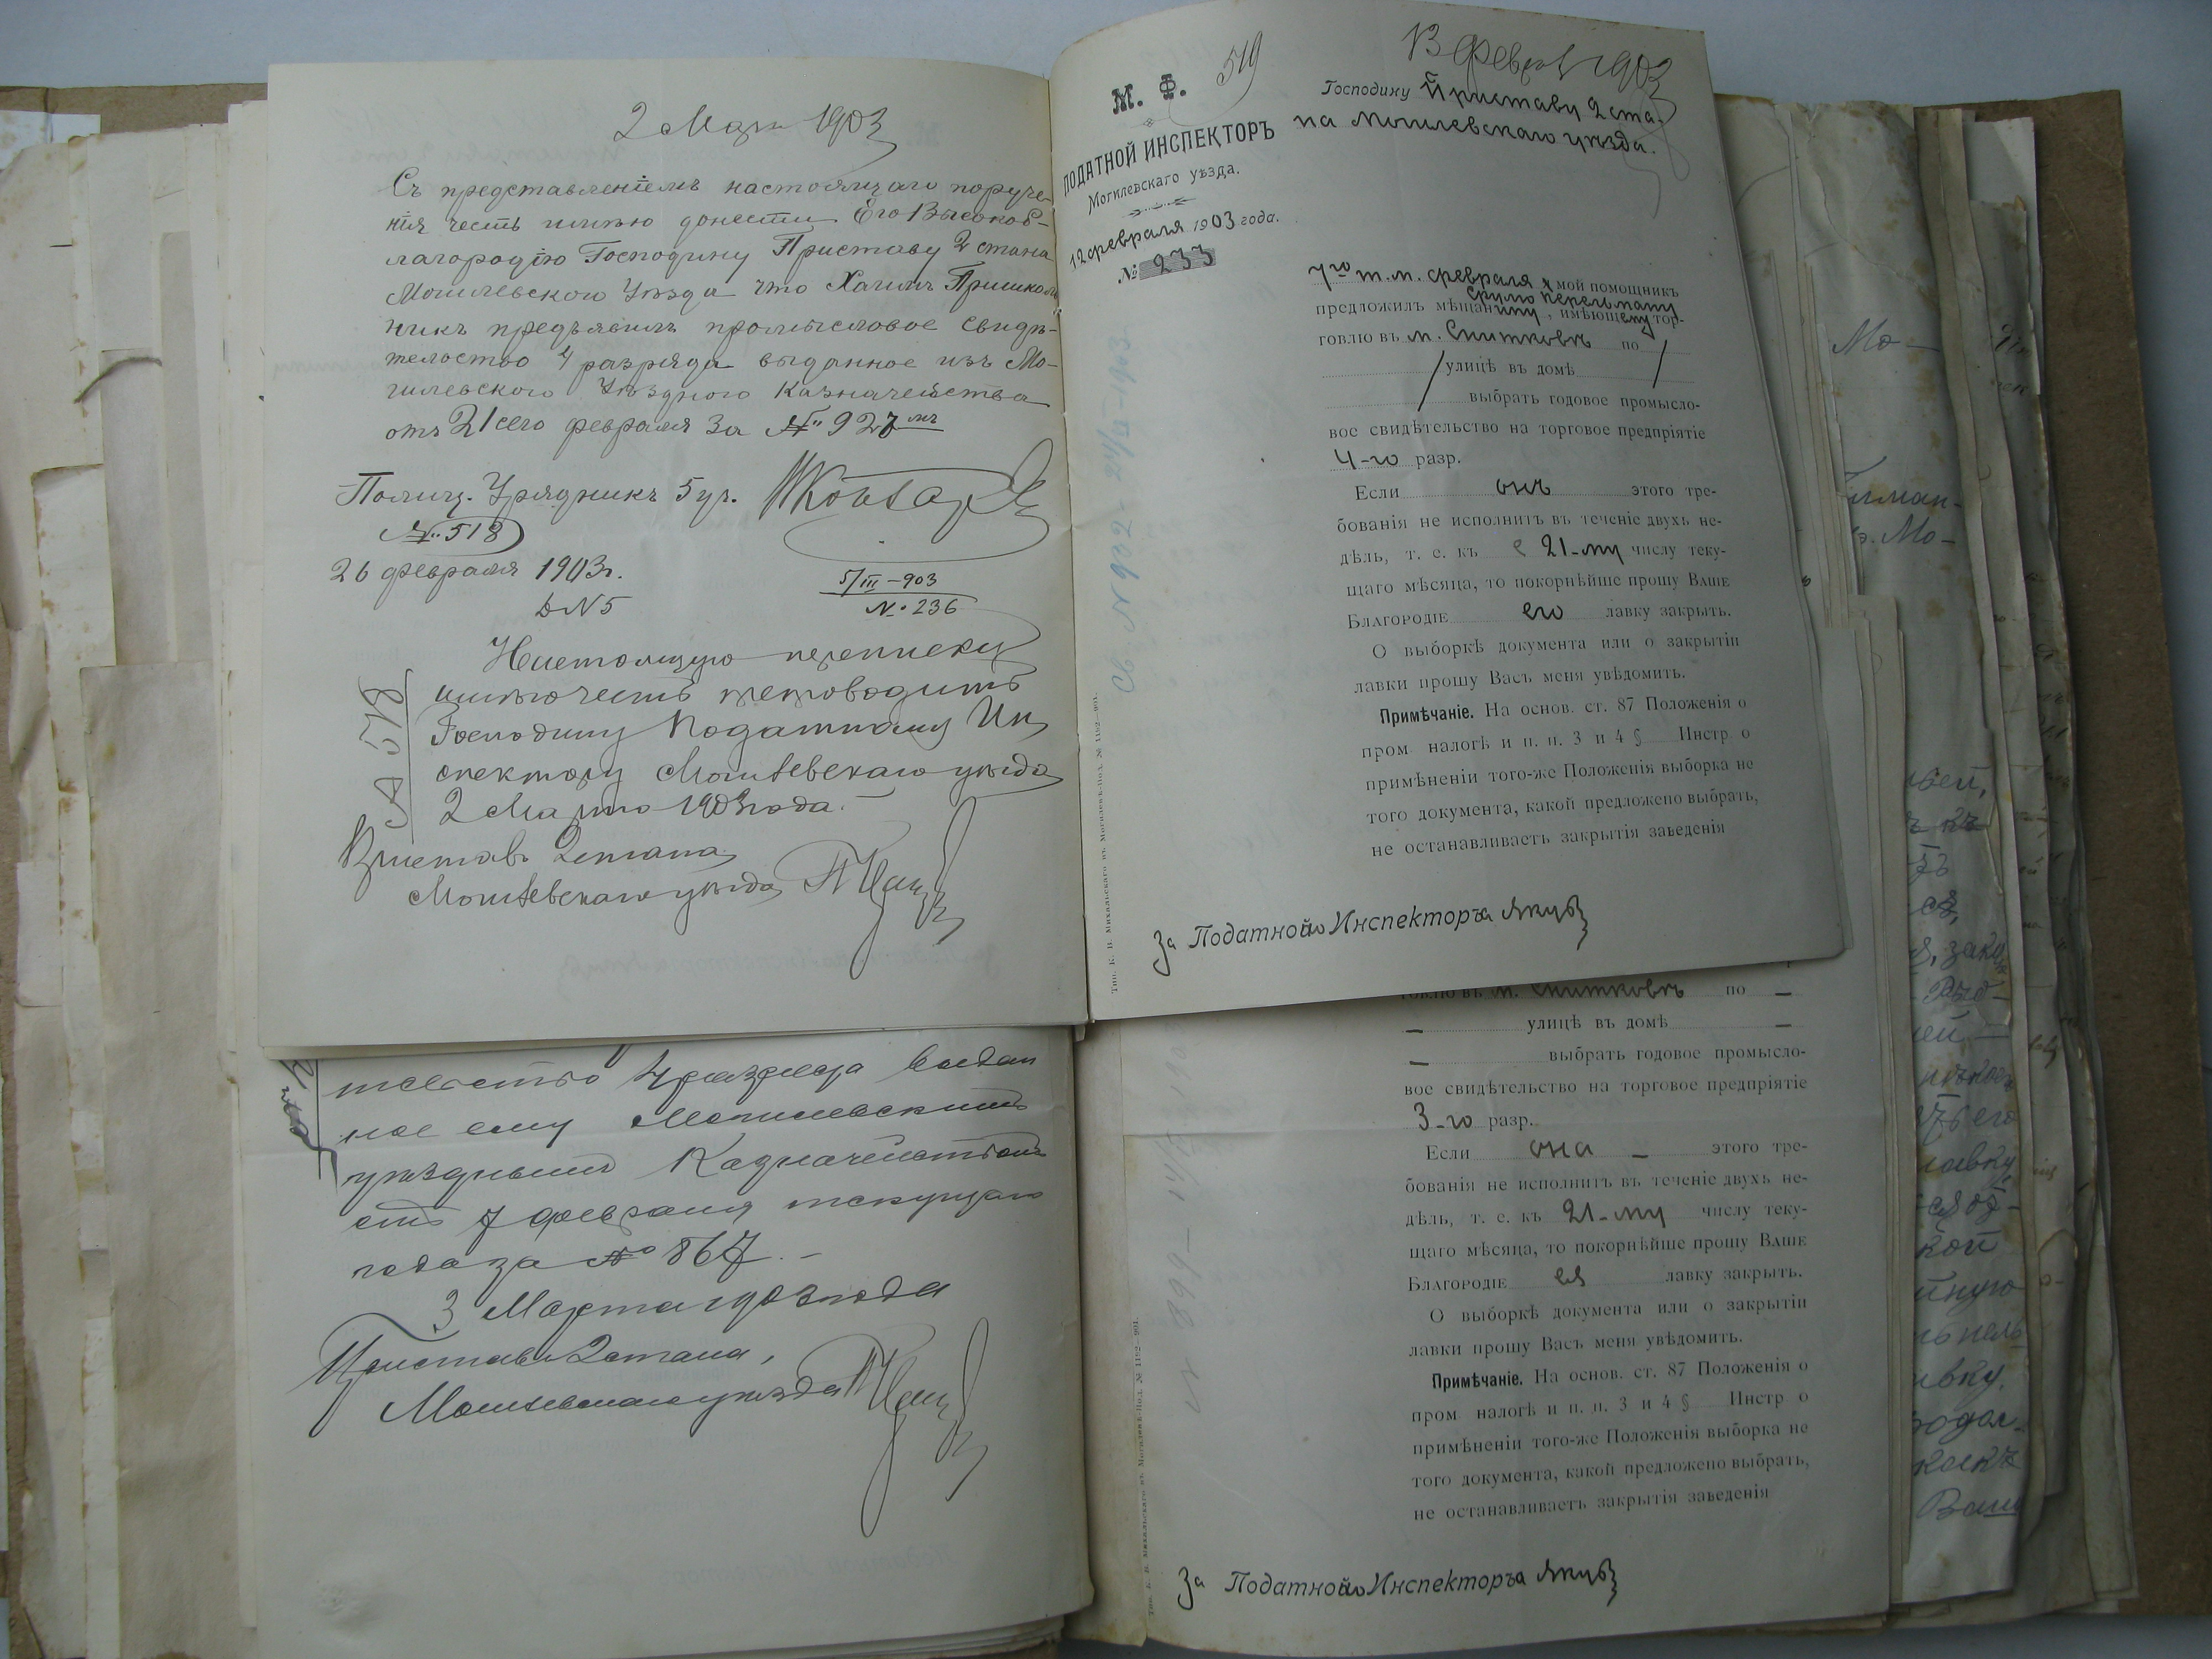 2 Марта 1903
Съ представленіемъ настоящаго поруче-
нія честь имѣю донести Его Высокоб-
лагородію Господину Приставу 2 стана
Могилевского Уѣзда что Хаимъ
никъ предъявилъ промысловое свидѣ-
тельство 4 разряда выданное изъ Мо-
гилевского Уѣздного Казначейства
отъ 21 сего февраля за № 927мъ
Полиц. Урядникъ 5 уч.
№ 518
26 февраля 1903г.
Д N 5
5/III-903
№ 236
Настоящую переписку
имѣю честь препроводить
Господину Податному Ин
спектору Могилевскаго уѣзда
2 Марта 1903 года.
Приставъ 2 стана
Могилевскаго уѣзда
519
М. Ф.
ПОДАТНОЙ ИНСПЕКТОРЪ
Могилевскаго уѣзда.
12 февраля 1903 года.
№ 233
13 февр 1903
Господину Приставу 2 ста-
на Могилевскаго уѣзда.
7го т.м. февраля мой помощникъ
Срулю Перельману
предложилъ мѣщанину, имѣющему тор-
говлю въ м. Снитковѣ по
улицѣ въ домѣ
выбрать годовое промысло-
вое свидѣтельство на торговое предпріятіе
4-го разр.
Если онъ этого тре-
бованія не исполнитъ въ теченіе двухъ не-
дѣль, т. е. къ 21-му числу теку-
щаго мѣсяца, то покорнѣйше прошу ВАШЕ
БЛАГОРОДІЕ его лавку закрыть.
О выборкѣ документа или о закрытіи
лавки прошу Васъ меня увѣдомить.
Примѣчаніе. На основ. ст. 87 Положенія о
пром налогѣ и п. п. 3 и 4 § Инстр о
примѣненіи того-же Положенія выборка не
того документа, какой предложено выбрать,
не останавливаетъ закрытія заведенія
За Податного Инспектора Якуб
Св. № 902 - 21/II-1903
Тип. К. Н. Михальскаго въ Могилевѣ-Под. № 1182—901.
тельство 4 разряда выдан
ное ему Могилевскимъ
уѣзднымъ Казначействомъ
отъ 7 февраля текущаго
года за № 867.-
3 Марта 1903 года
Приставъ 2 стана,
Могилевскаго уѣзда
говлю въ м. Снитковѣ по —
— улицѣ въ домѣ —
— выбрать годовое промысло-
вое свидѣтельство на торговое предпріятіе
3-го разр.
Если она — этого тре-
бованія не исполнитъ въ теченіе двухъ не-
дѣль, т. е. къ 21-му числу теку-
щаго мѣсяца, то покорнѣйше прошу ВАШЕ
БЛАГОРОДІЕ ея лавку закрыть.
О выборкѣ документа или о закрытіи
лавки прошу Васъ меня увѣдомить.
Примѣчаніе. На основ. ст. 87 Положенія о
пром налогѣ и п. п. 3 и 4 § Инстр о
примѣненіи того-же Положенія выборка не
того документа, какой предложено выбрать,
не останавливаетъ закрытія заведенія
За Податного Инспектора Якуб
Тип. К. Н. Михальскаго въ Могилевѣ-Под. № 1182—901.
Мо-
Мо-
лавку
кой
Ваше